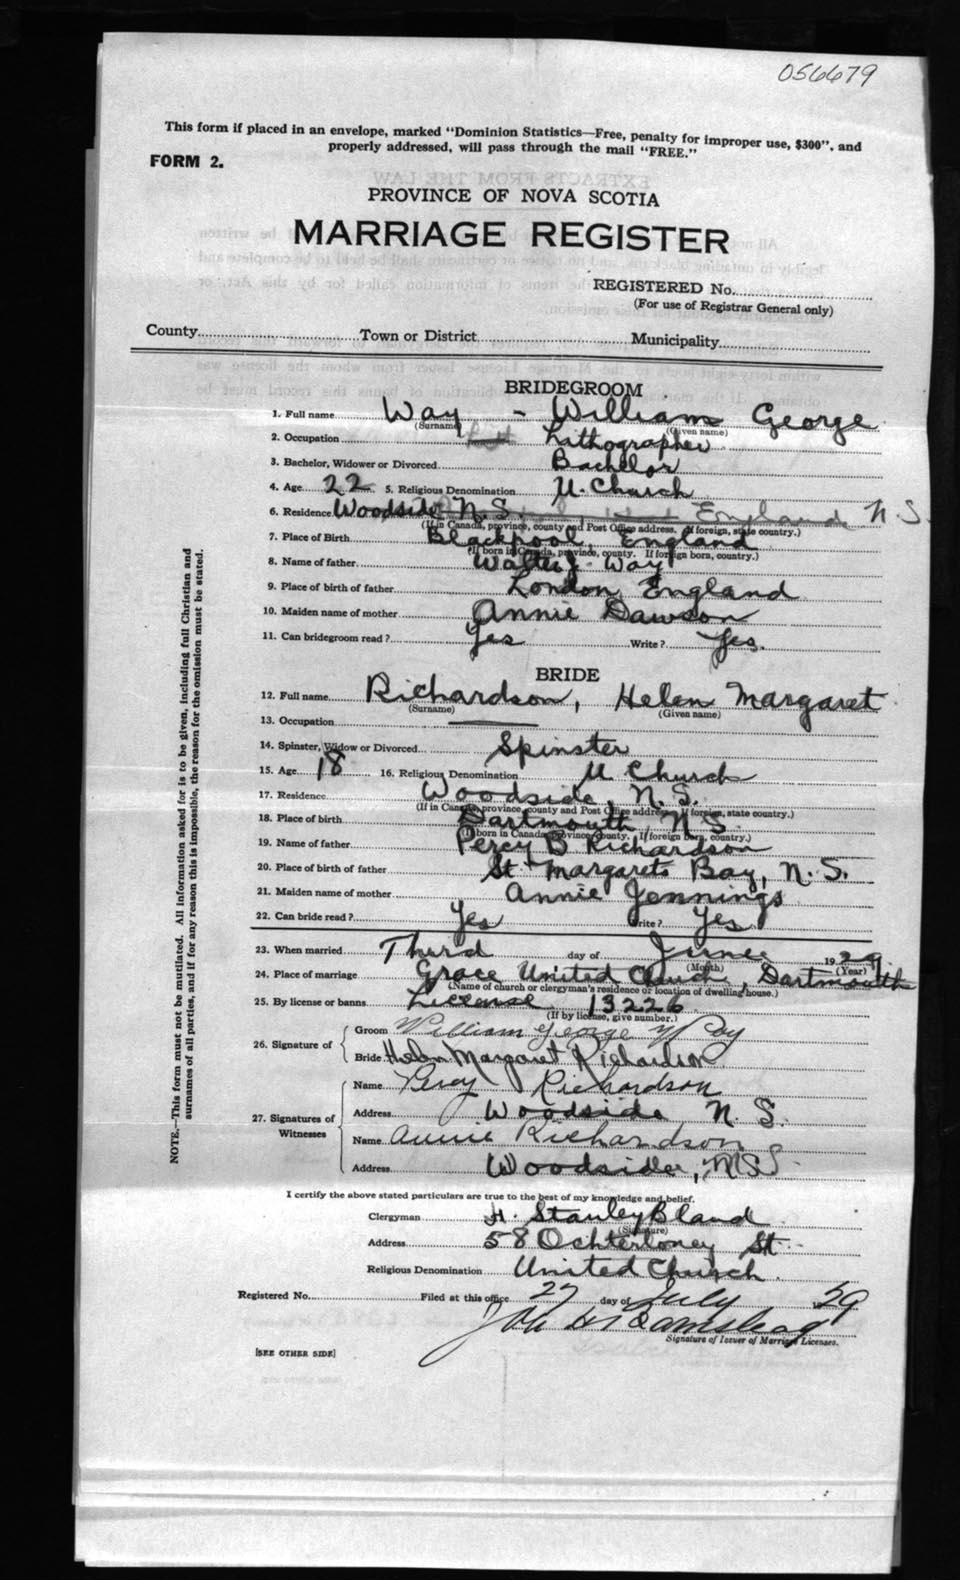 056679
This form if placed in an envelope, marked "Dominion Statistics—Free, penalty for improper use, $300", and
properly addressed, will pass through the mail "FREE."
FORM 2.
PROVINCE OF NOVA SCOTIA
MARRIAGE REGISTER
REGISTERED No.
(For use of Registrar General only)
County Town or District Municipality
BRIDEGROOM
1. Full name Way - William George
(Surname) (Given name)
2. Occupation Lithographer
3. Bachelor, Widower or Divorced Bachelor
4. Age 22 5. Religious Denomination U. Church
6. Residence Woodside N.S. England N.S
(If in Canada, province, county and Post Office address. If foreign, state country.)
7. Place of Birth Blackpool, England
(If born in Canada, province, county. If foreign born, country.)
8. Name of father Walter J. Way
9. Place of birth of father London, England
10. Maiden name of mother Annie Dawson
11. Can bridegroom read? Yes Write? Yes.
BRIDE
12. Full name Richardson, Helen Margaret
(Surname) (Given name)
13. Occupation
14. Spinster, Widow or Divorced Spinster
15. Age 18 16. Religious Denomination U Church
17. Residence Woodside, N.S.
(If in Canada, province, county and Post Office address. If foreign, state country.)
18. Place of birth Dartmouth, N.S.
(If born in Canada, province, county. If foreign born, country.)
19. Name of father Percy B Richardson
20. Place of birth of father St. Margarets Bay, N.S.
21. Maiden name of mother Annie Jennings
22. Can bride read? Yes Write? Yes
23. When married Third day of June 1929
(Month) (Year)
24. Place of marriage Grace United Church, Dartmouth
(Name of church or clergyman's residence or location of dwelling house.)
25. By license or banns License 13226
(If by license, give number.)
26. Signature of
Groom William George Way
Bride Helen Margaret Richardson
27. Signatures of Witnesses
Name Percy Richardson
Address Woodside N.S.
Name Annie Richardson
Address Woodside, N.S.
I certify the above stated particulars are true to the best of my knowledge and belief.
Clergyman H. Stanley Bland
(Signature)
Address 58 Ochterloney St.
Religious Denomination United Church.
Registered No. Filed at this office 27 day of July 1929
Signature of Issuer of Marriage Licenses.
[SEE OTHER SIDE]
NOTE.—This form must not be mutilated. All information asked for is to be given, including full Christian and
surnames of all parties, and if for any reason this is impossible, the reason for the omission must be stated.